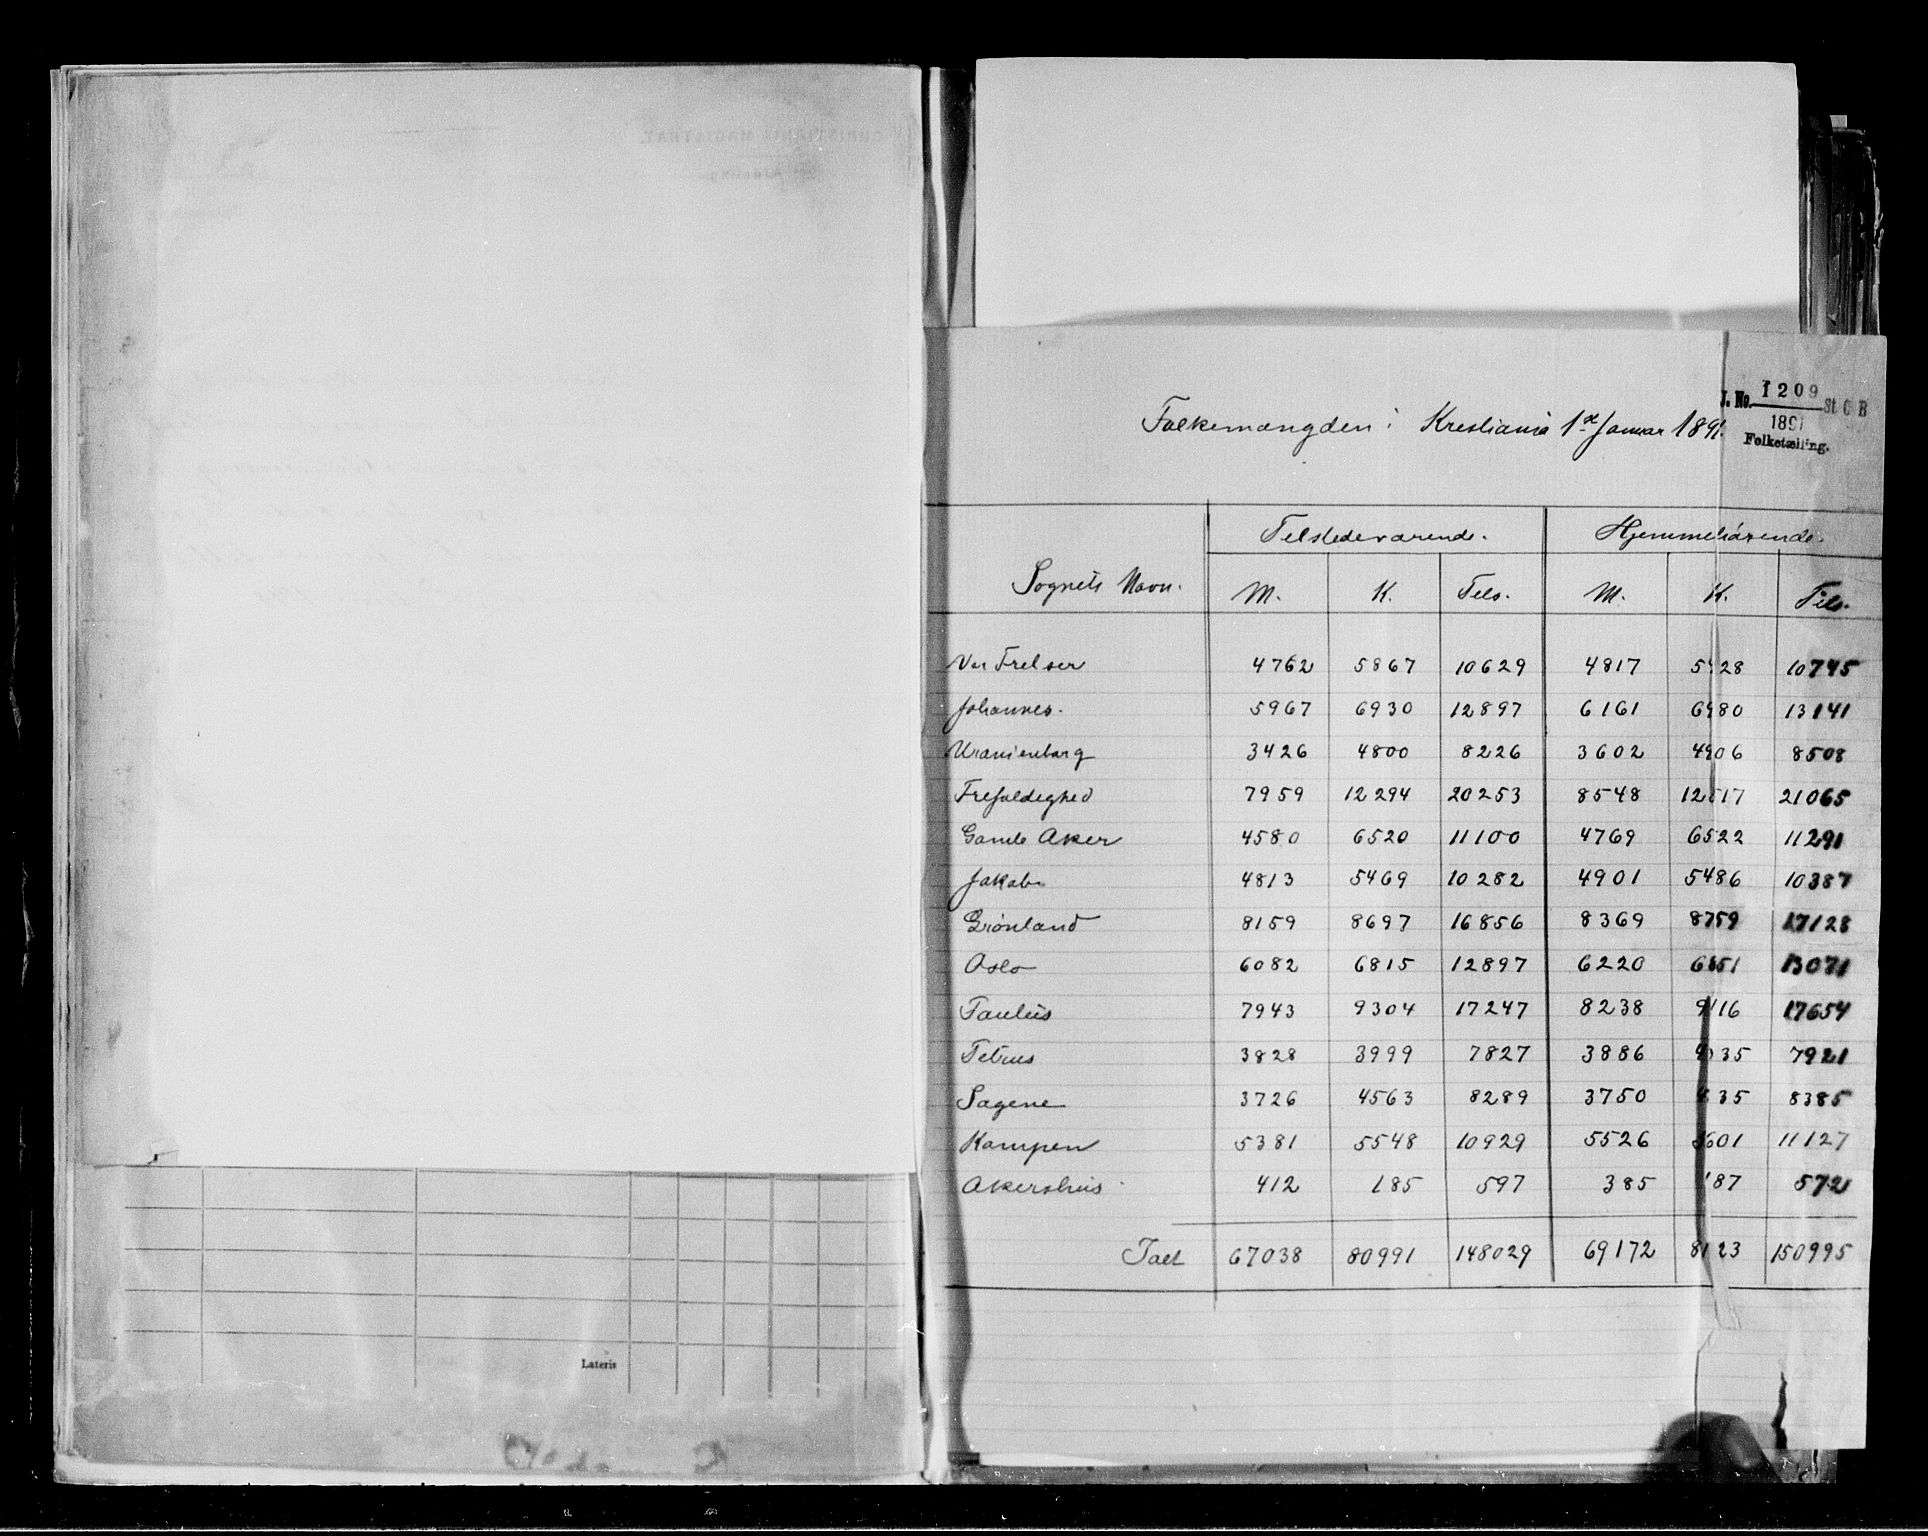 Lateris
J. No. 1209 St. C B
1891
Folketælling.
Folkemængden i Kristiania 1ste Januar 1891.
Tilstedeværende. Hjemmehörende.
Sognets Navn. M. K. Tils. M. K. Tils.
Vor Frelser 4762 5867 10629 4817 5928 10745
Johannes. 5967 6930 12897 6161 6980 13141
Uranienborg 3426 4800 8226 3602 4906 8508
Trefoldighed 7959 12294 20253 8548 12517 21065
Gamle Aker 4580 6520 11100 4769 6522 11291
Jakob 4813 5469 10282 4901 5486 10387
Grönland 8159 8697 16856 8369 8759 17128
Oslo 6082 6815 12897 6220 6851 13071
Paulus 7943 9304 17247 8238 9416 17654
Petrus 3828 3999 7827 3886 4035 7921
Sagene 3726 4563 8289 3750 4635 8385
Kampen 5381 5548 10929 5526 5601 11127
Akershus 412 185 597 385 187 572
Talt 67038 80991 148029 69172 81823 150995